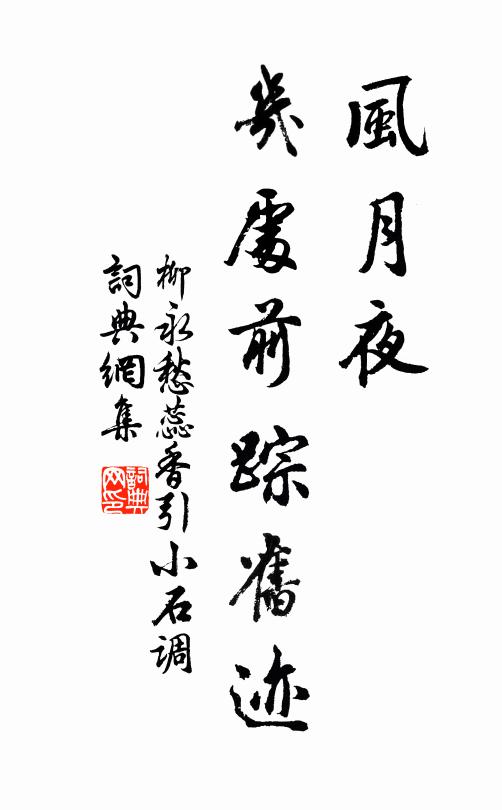 風月夜
幾處前踪舊迹
柳永愁蕊香引小石調
詞典網集
詞典
网印